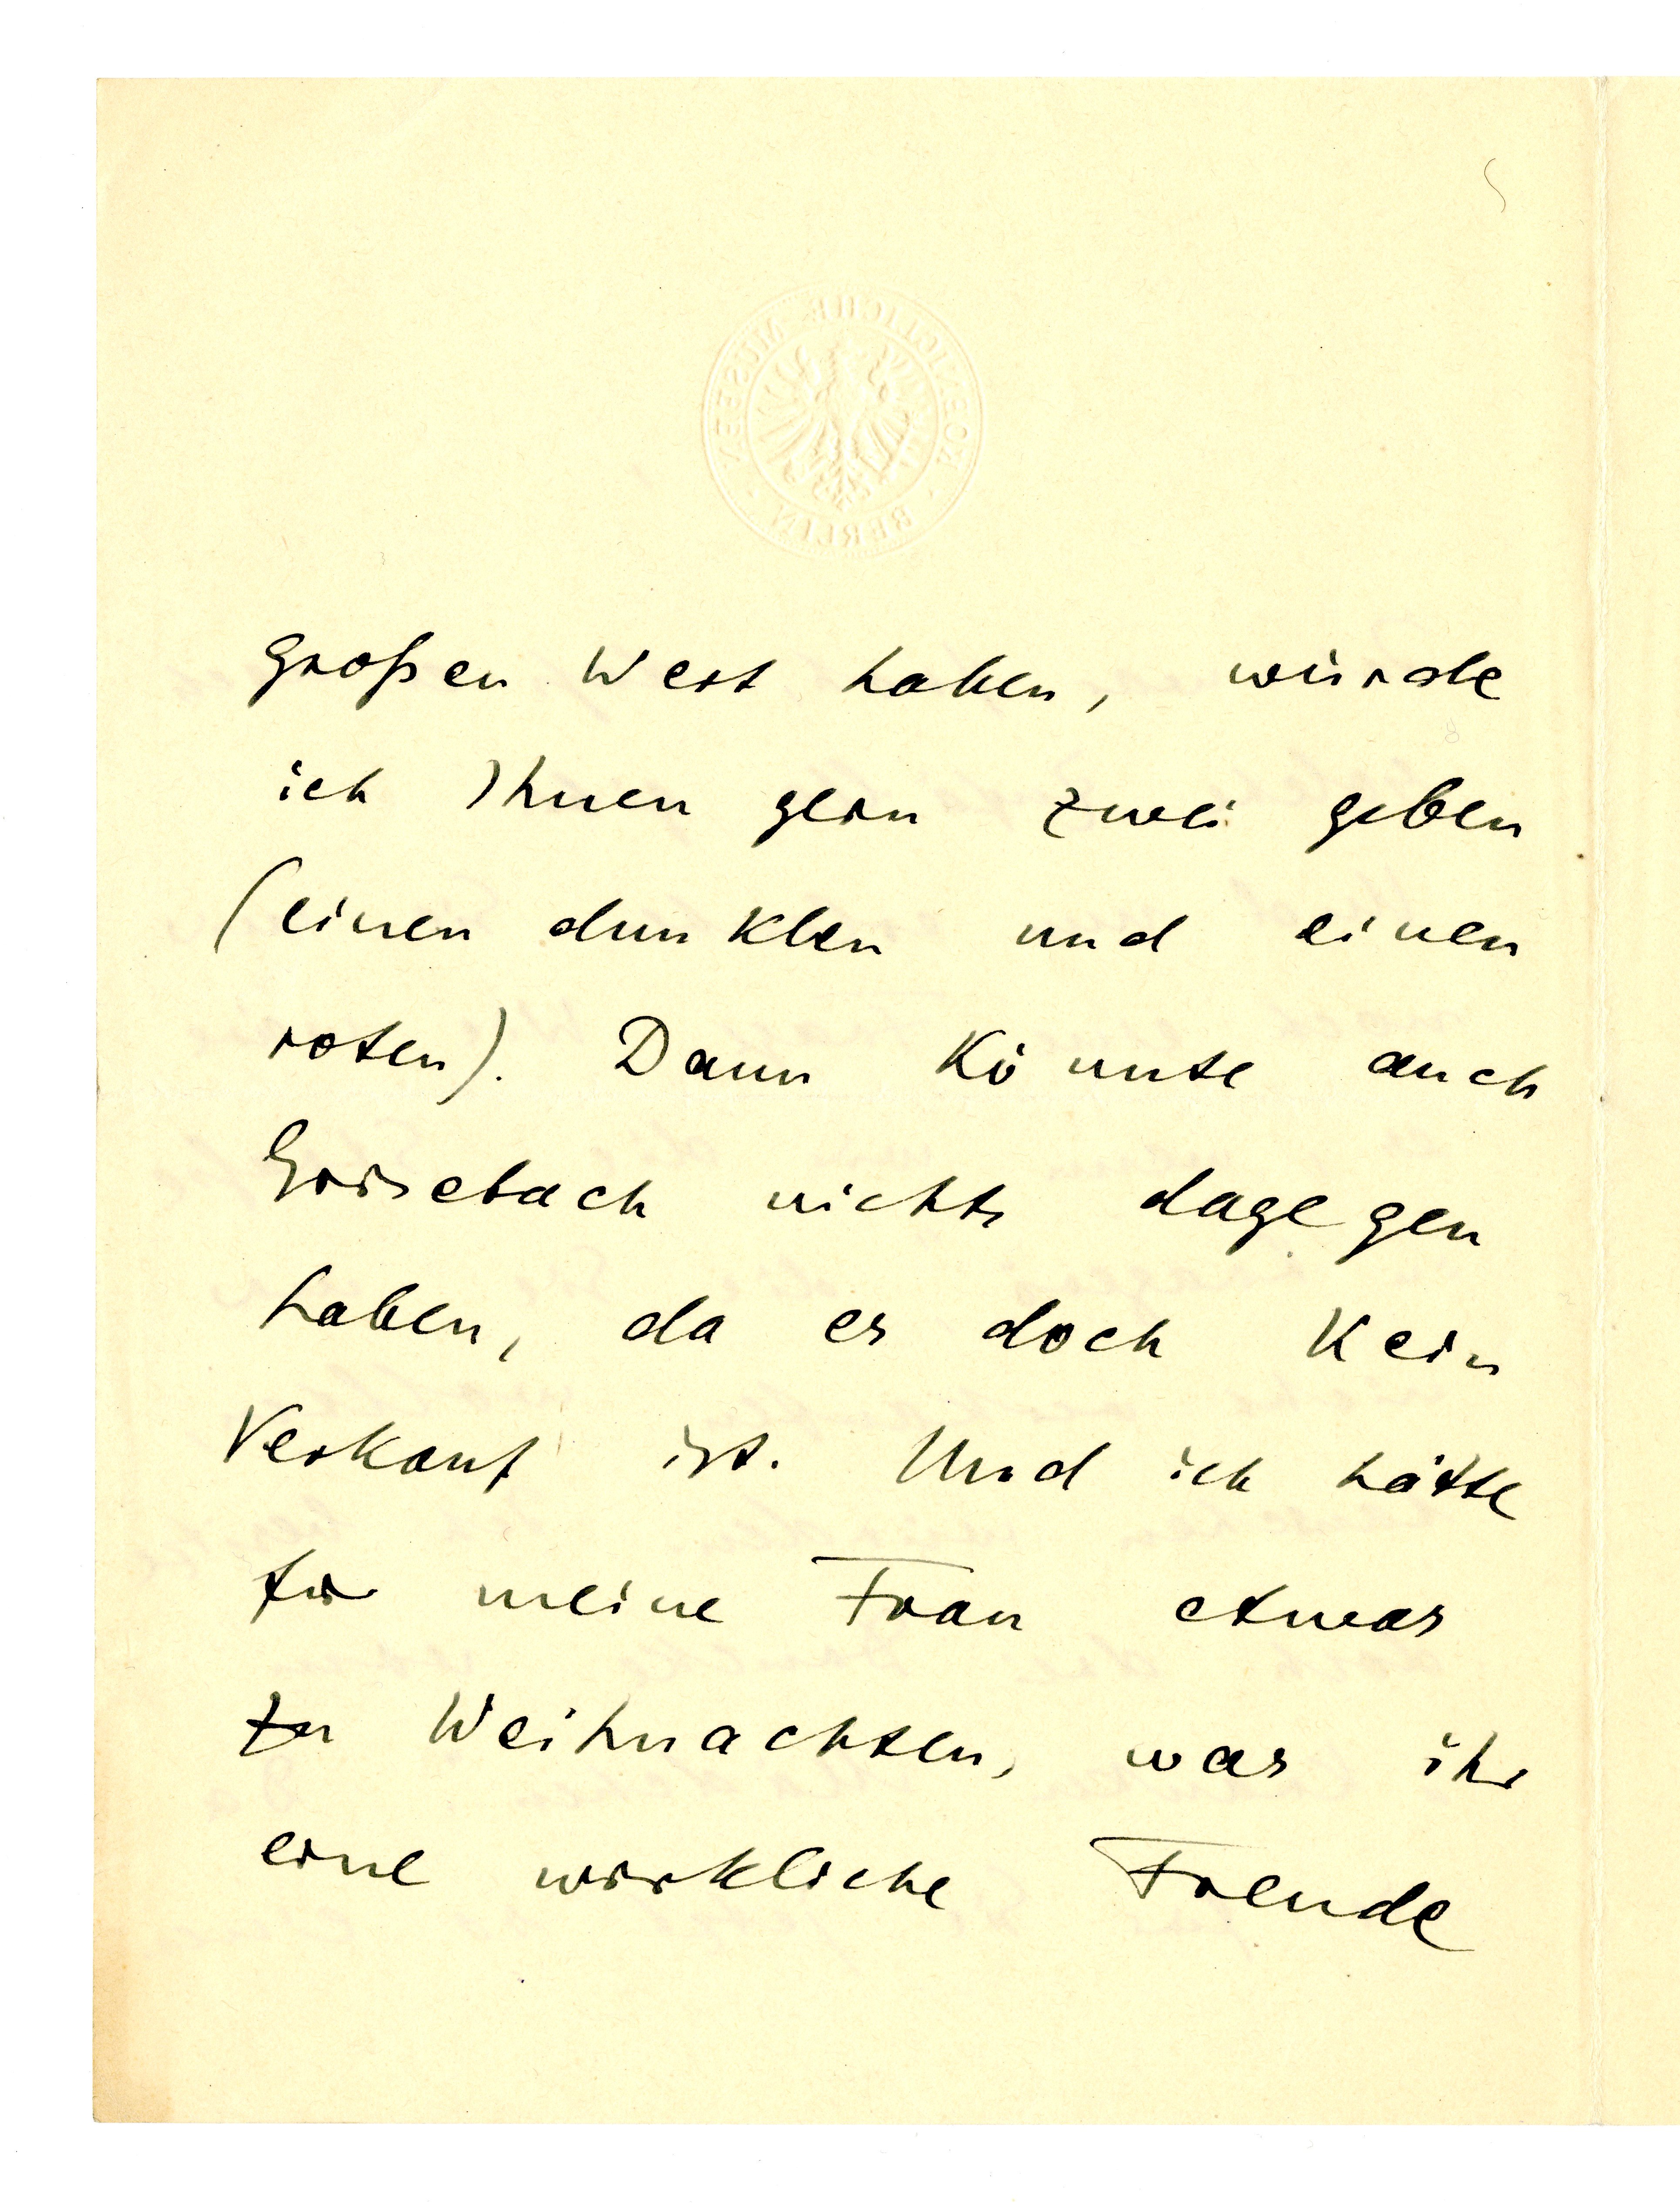 KOENIGLICHE MUSEEN
BERLIN
großen Wert haben, würde
ich Ihnen gern zwei geben
(einen dunklen und einen
roten). Dann könnte auch
Grisebach nichts dagegen
haben, da es doch kein
Verkauf ist. Und ich hätte
für meine Frau etwas
zu Weihnachten, was ihr
eine wirkliche Freude